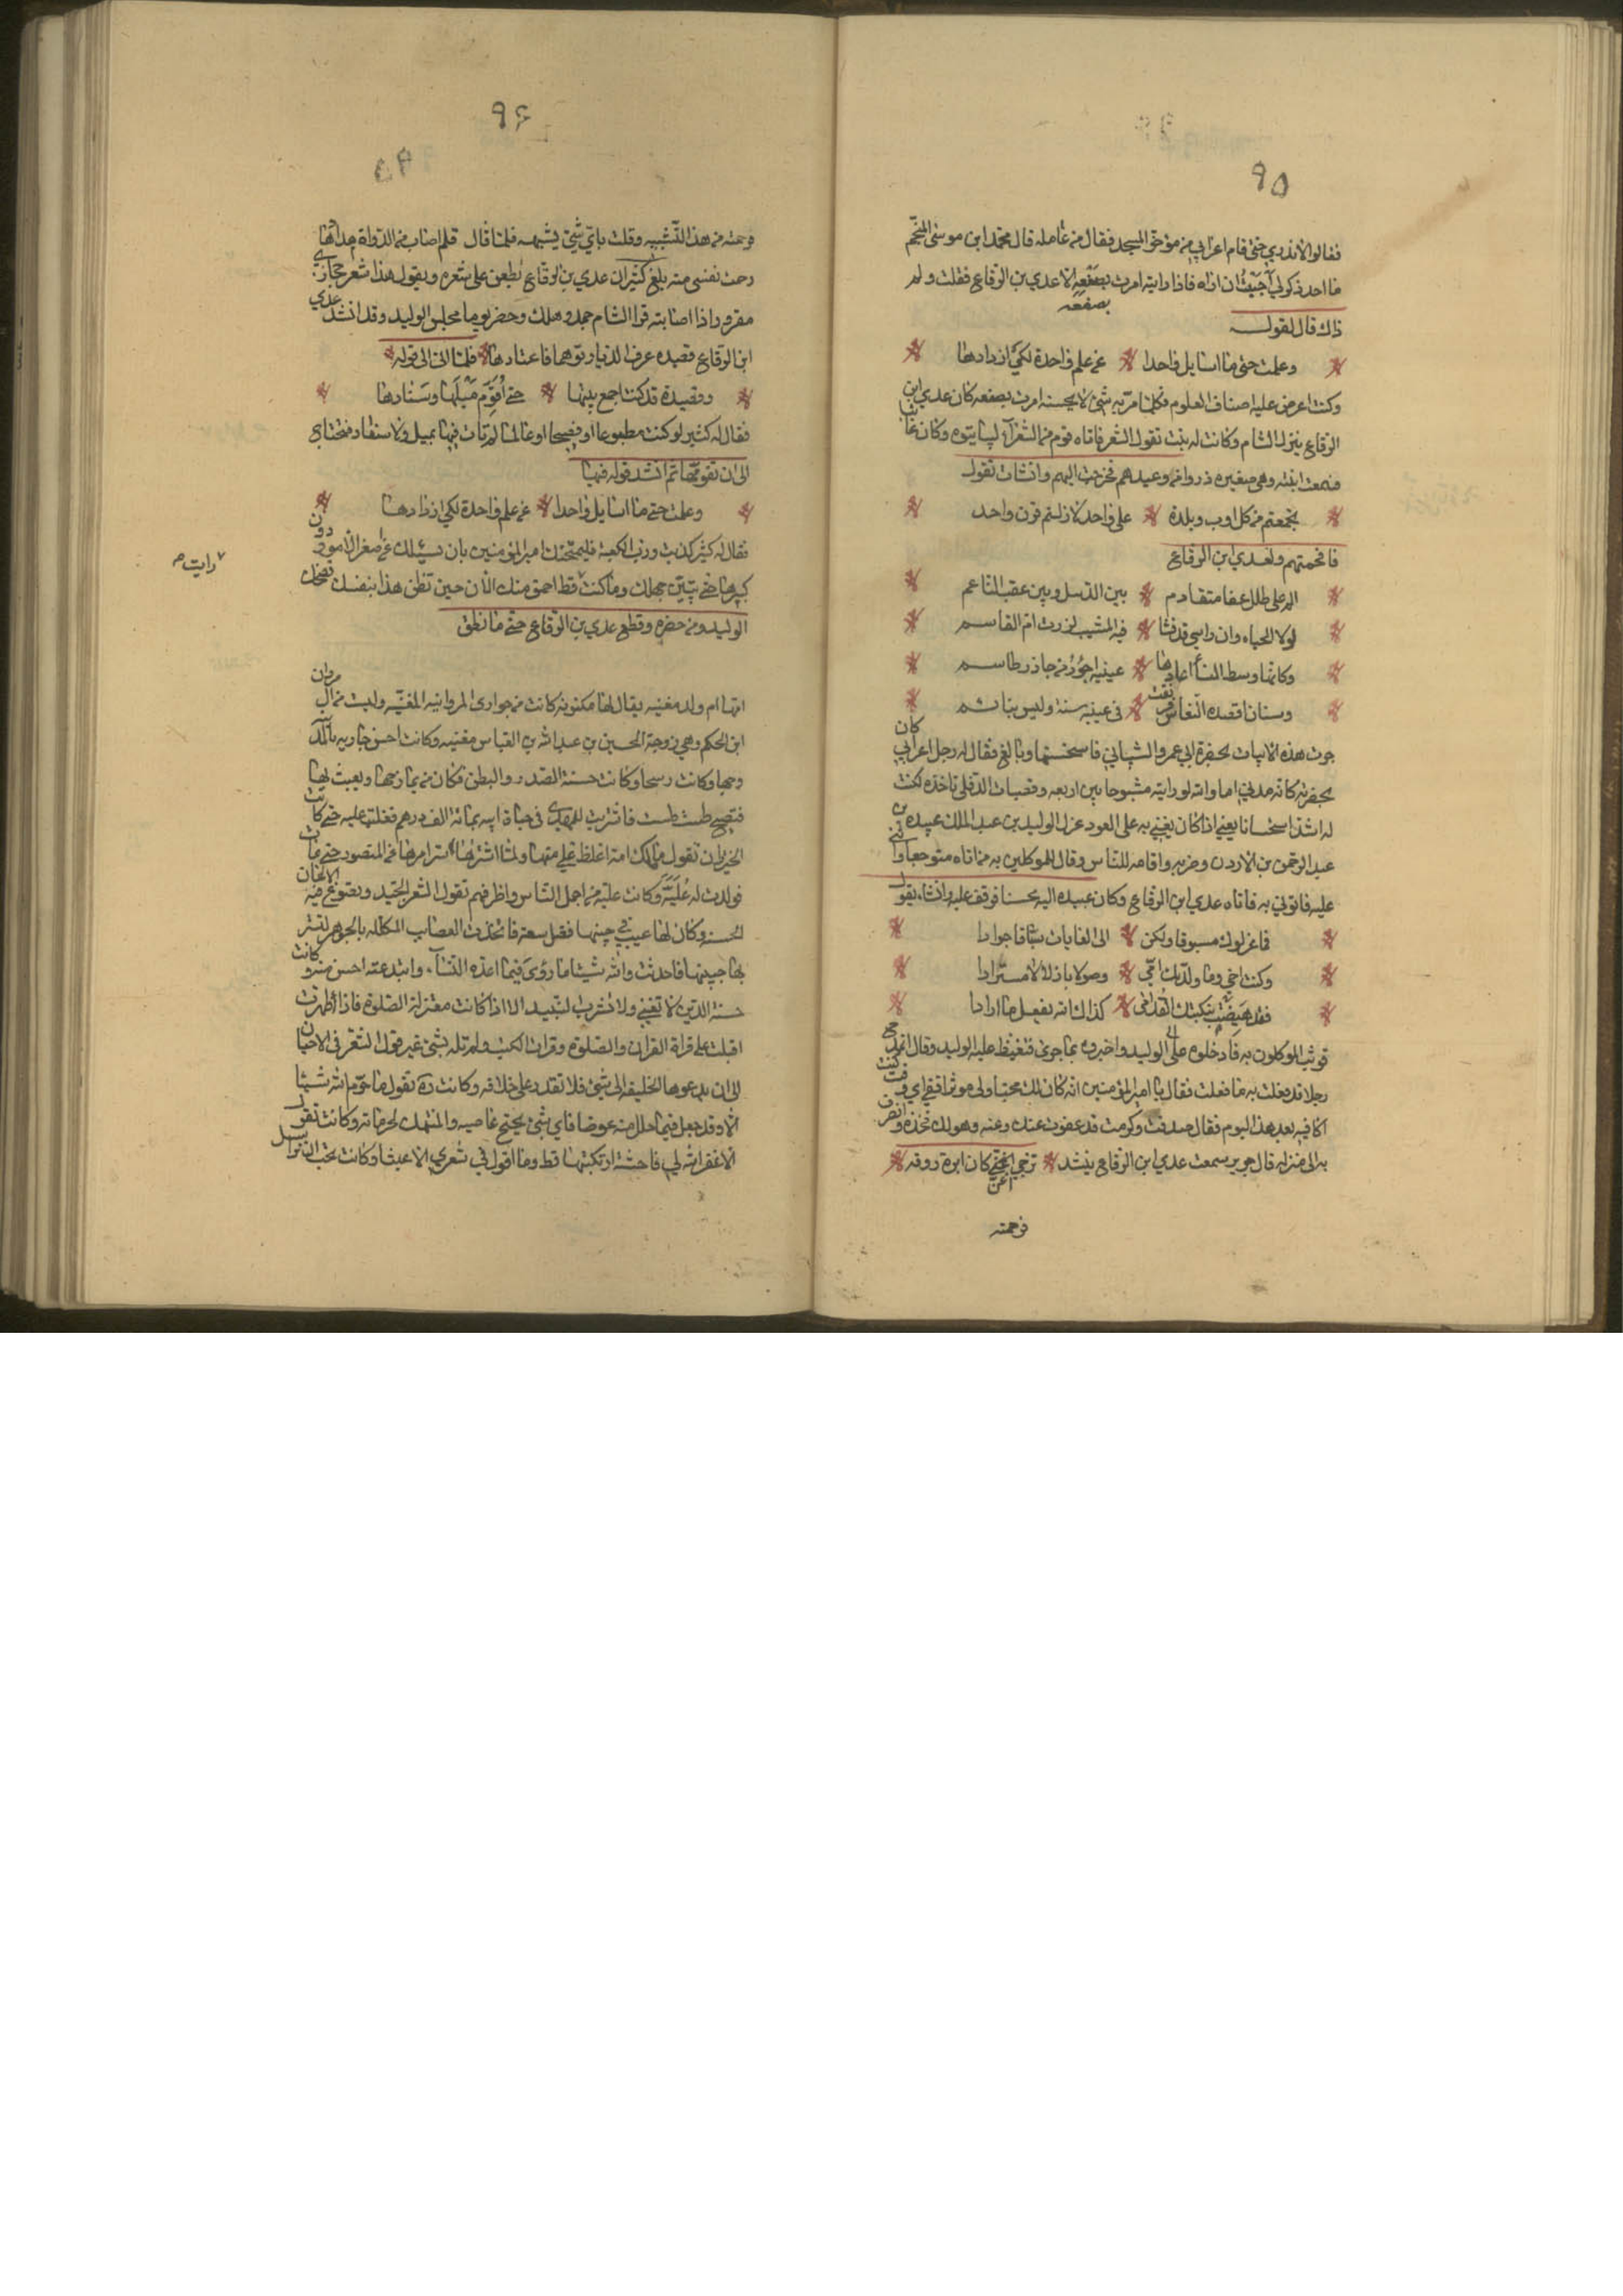 ٩٥
فقالوا لا ندري حتى قام اعرابي من مؤخر المسجد فقال من عامله قال محمد ابن موسى المنجم
ما احد ذكر لي احببت ان اراه فاذا رايته امرت بصفعه الا عدي بن الوقاع فقلت ولم
بصفعه
ذلك قال لقوله
وعلمت حتى ما اسايل واحدا عن علم واحدة لكي ازدادها
وكنت اعرض عليه اصناف العلوم فكلما مر به شئ لا يحسنه امرت بصفعه كان عدي ابن
الوقاع ينزل الشام وكانت له بنت تقول الشعر فاتاه قوم من الشعرآء ليماتنوه وكان غائبا
فسمعت ابنته وهي صغيره ذروا من وعيدهم فخرجت اليهم وانشات تقول
تجمعتم من كل اوب وبلدة على واحد لا زلتم قرن واحد
فافحمتهم ولعدي ابن الوقاع
المم على طلل عفا متقادم بين الذئيب وبين عقب الناعم
لولا الحياء وان راسي قد فشا فيه المشيب لزرت ام القاسم
وكانها وسط النسأ اعارها عينيه احور من جاذر طاسم
وسنان اقصده النعاس فرنقت في عينه سنة وليس بنائم
جرت هذه الابيات بحضرة ابي عمرو الشيباني فاستحسنها وبالغ فقال له رجل اعرابي كان
بحضرته كانه مدني اما والله لو رايته مشبوحا بين اربعه وقضبات الدفلى تاخذه لكنت
له اشد استحسانا يعني اذا كان يغني به على العود عزل الوليد بن عبد الملك عبيده بن
عبد الرحمن بن الاردن وضربه واقامه للناس وقال للموكلين به من اتاه متوجعا واثنى
عليه فاتوني به فاتاه عدي ابن الوقاع وكان عبيده اليه محسنا فوقف عليه وانشاء يقول
فما عزلوك مسبوقا ولكن الى الغايات سباقا جوادا
وكنت اخي وما ولدتك امي وصولا باذلا لا مستزادا
فقد هيضت بنكبتك القدامى كذاك الله يفعل ما ارادا
فوثب الموكلون به فادخلوه على الوليد واخبروه بما جرى فتغيظ عليه الوليد وقال اتمدح
رجلا قد فعلت به ما فعلت فقال يا امير المؤمنين انه كان لك محبا ولي موثرا ففي اي وقت كنت
اكافيه بعد هذا اليوم فقال صدقت وكرمت قد عفوت عنك وعنه وهو لك فخذه وانصرف
به الى منزله قال جرير سمعت عدي ابن الوقاع ينشد تزجي اغن كان ابرة روقه
فرحمته
٩٦
فرحمته من هذا التشبيه وقلت باي شئ يشبهه فلما قال قلم اصاب من الدواة مدادها
رحمت نفسي منه بلغ كثير ان عدي بن الوقاع يطعن على شعره ويقول هذا شعر حجازي
مقرور اذا اصابته قر الشام جمد وهلك وحضر يوما مجلس الوليد وقد انشد عدي
ابن الوقاع قصيده عرف الديار توهما فاعتادها فلما اتى الى قوله
وقصيدة قد كنت اجمع بينها حتى اقوم ميلها وسنادها
فقال له كثير لو كنت مطبوعا او فصيحا او عالما لم تات فيها بميل ولا سناد فتحتاج
الى ان تقومها ثم انشد قوله فيها
وعلمت حتى ما اسايل واحدا عن علم واحدة لكي ازدادها
فقال له كثير كذبت ورب الكعبة فليمتحنك امير المؤمنين بان يسئلك عن صغر الامور دون
كبيرها حتى يتبين جهلك وما كنت قط احمق منك الان حين تظن هذا بنفسك فضحك
رايت
الوليد ومن حضره وقطع عدي بن الوقاع حتى ما نطق
امها ام ولد مغنيه يقال لها مكنونه كانت من جواري المروانيه المغنيه وليست من ال مروان
ابن الحكم وهي زوجة الحسين بن عبد الله بن العباس مغنيه وكانت احسن جاريه بالمدينة
وجها وكانت رسحا وكانت حسنة الصدر والبطن فكان من يمازحها ويعبث بها
فتصيح طست طست فاشتريت للمهدي في حياة ابيه بمائة الف درهم فغلبت عليه حتى كانت
الخيزران تقول ما ملك امة اغلظ علي منها ولما اشتراها ستر امرها عن المنصور حتى مات
فولدت له علية وكانت علية من اجمل الناس واظرفهم تقول الشعر الجيد وتصوغ فيه الالحان
الحسنه وكان لها عيب في جبينها فضل سعة فاتخذت العصايب المكلله بالجوهر لتستر
بها جبينها فاحدثت والله شيئا ما رؤي فيما احدثه النسآء وابتدعته احسن منه وكانت
حسنة الدين لا تغني ولا تشرب النبيذ الا اذا كانت معتزلة الصلوة فاذا طهرت
اقبلت على قرآة القران والصلوة وقرات الكتب ولم تله بشئ غير قول الشعر في الاحيان
الا ان يدعوها الخليفه الى شئ فلا تقدر على خلافه وكانت رة تقول ما حرم الله شيئا
الا وقد جعل فيما حلل منه عوضا فاي بشئ يحتج عاصيه والمنتهك لحرماته وكانت تقول
لا غفر الله لي فاحشة ارتكبتها قط وما اقول في شعري الا عبثا وكانت تحب ان تراسل